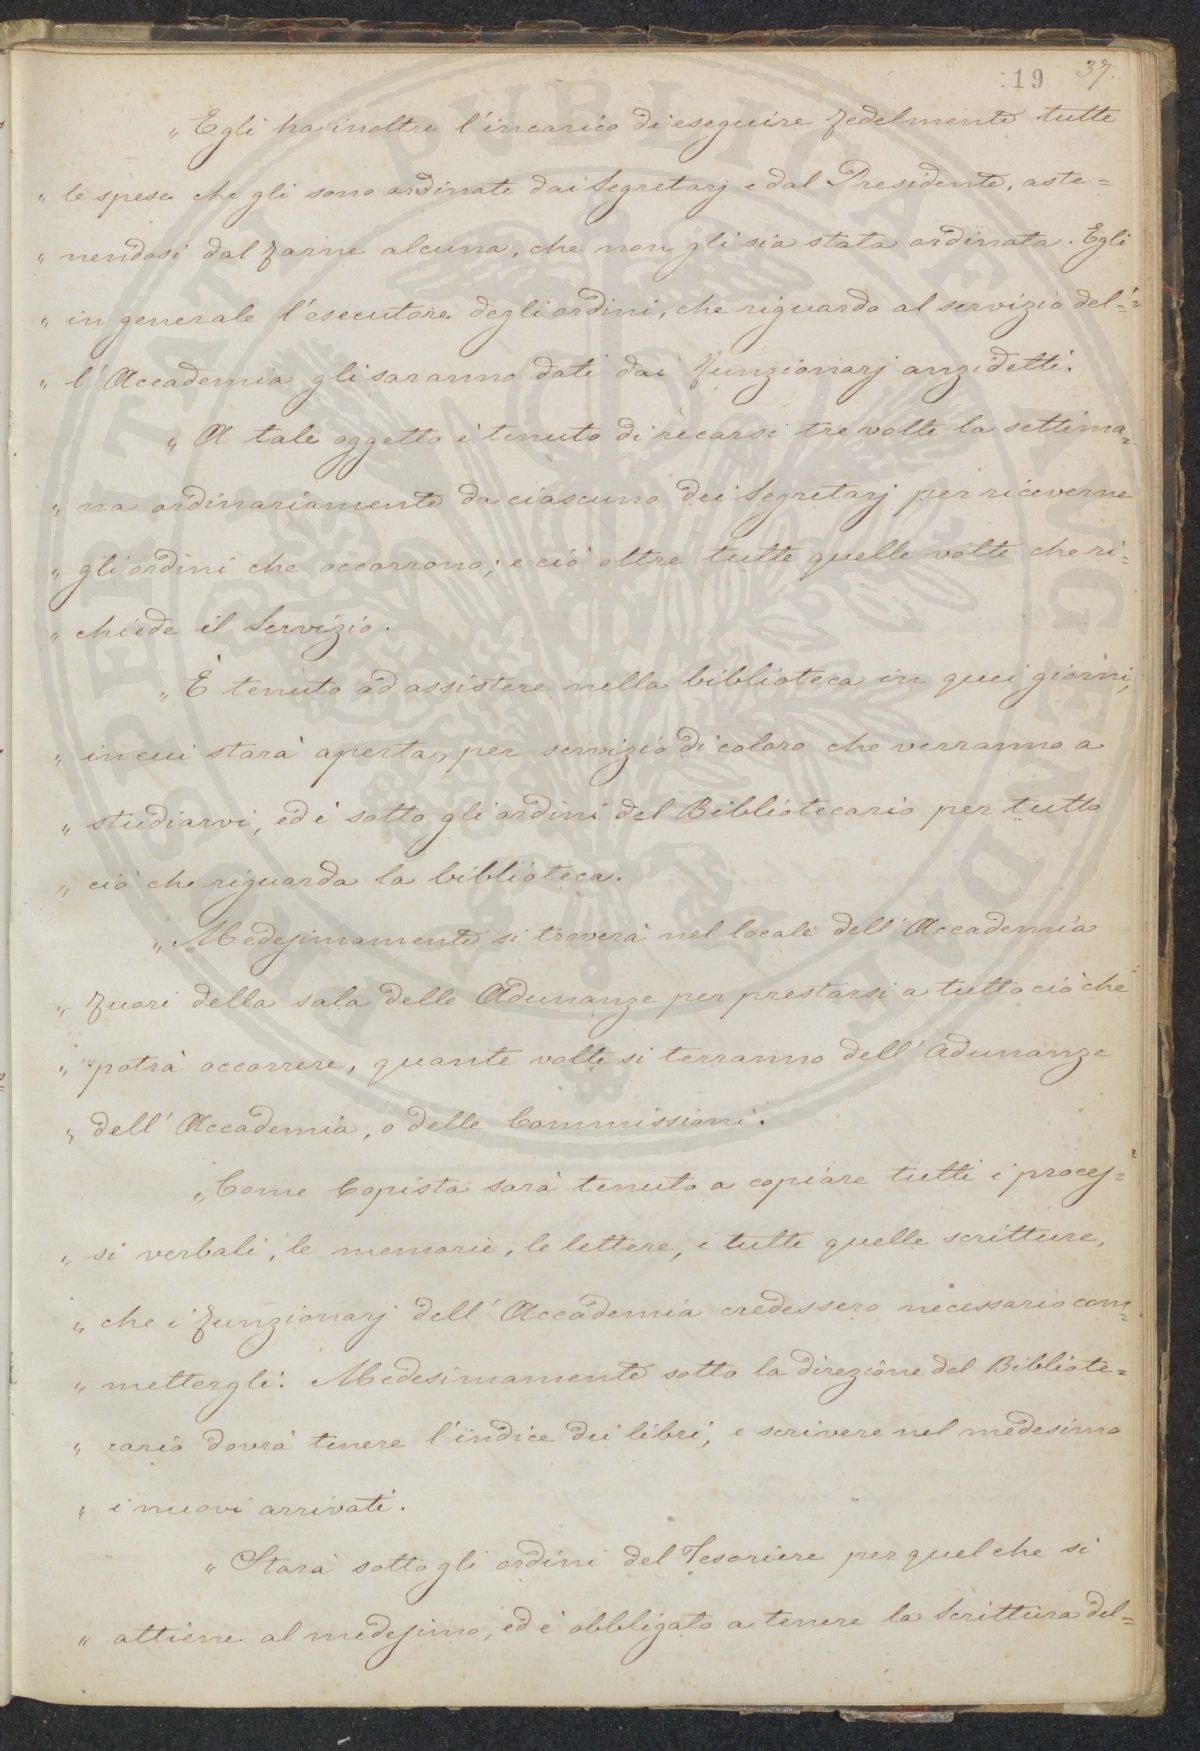 19 37.
„ Egli ha inoltre l'incarico di eseguire fedelmente tutte
„ le spese che gli sono ordinate dai Segretarj e dal Presidente, aste=
„ nendosi dal farne alcuna, che non gli sia stata ordinata. Egli
„ in generale l'esecutore degli ordini, che riguardo al servizio del=
„ l'Accademia gli saranno dati dai funzionarj anzidetti.
„ A tale oggetto è tenuto di recarsi tre volte la settima=
„ na ordinariamente da ciascuno dei Segretarj per riceverne
„ gli ordini che occorrono; e ciò oltre tutte quelle volte che ri=
„ chiede il Servizio.
„ È tenuto ad assistere nella biblioteca in quei giorni,
„ in cui starà aperta, per servizio di coloro che verranno a
„ studiarvi, ed è sotto gli ordini del Bibliotecario per tutto
„ ciò che riguarda la biblioteca.
„ Medesimamente si troverà nel locale dell'Accademia
„ fuori della sala delle Adunanze per prestarsi a tutto ciò che
„ potrà occorrere, quante volte si terranno dell'Adunanze
„ dell'Accademia, o delle Commissioni.
„ Come Copista sarà tenuto a copiare tutti i proces=
„ si verbali, le memorie, le lettere, e tutte quelle scritture,
„ che i funzionarj dell'Accademia credessero necessario com=
„ mettergli. Medesimamente sotto la direzione del Bibliote=
„ cario dovrà tenere l'indice dei libri, e scrivere nel medesimo
„ i nuovi arrivati.
„ Starà sotto gli ordini del Tesoriere per quel che si
„ attiene al medesimo, ed è obbligato a tenere la Scrittura del=
PVBLICAE AVGENDAE PROSPERITATI